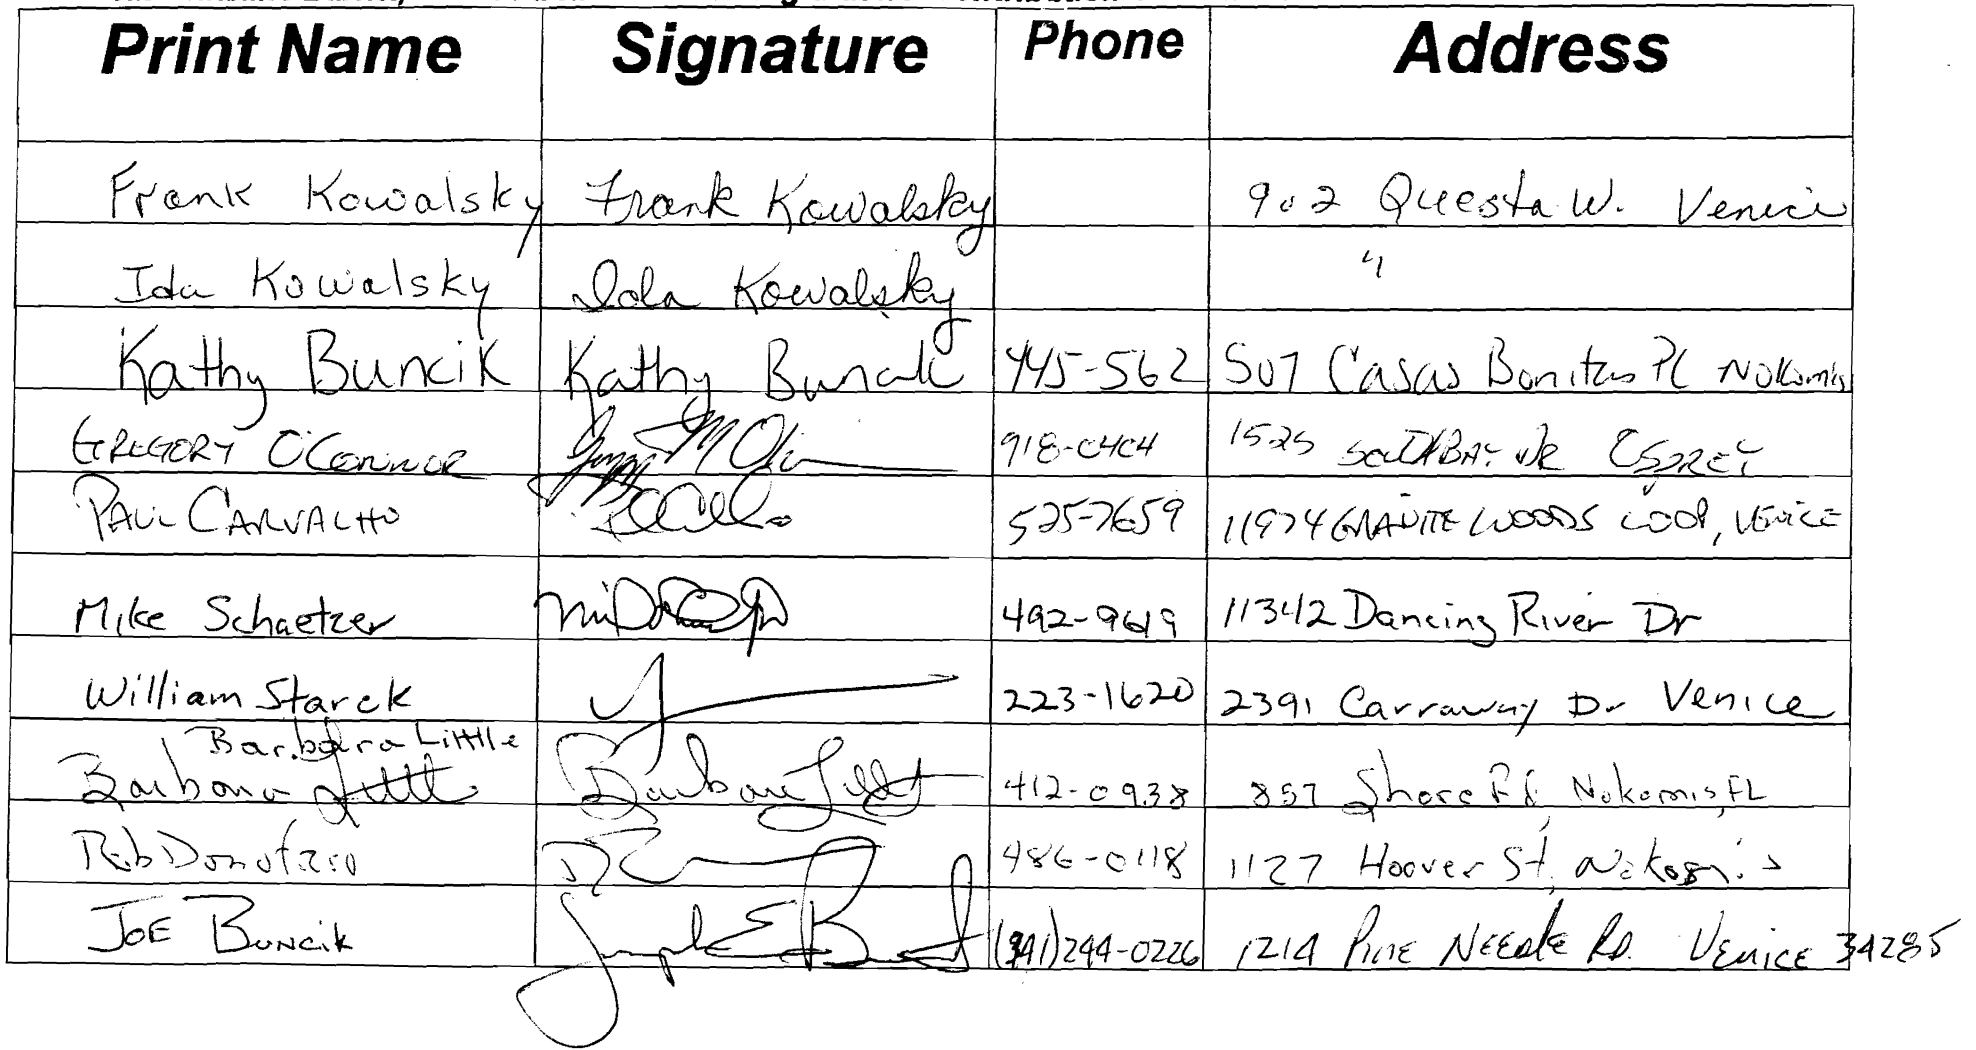 Print Name Signature Phone Address
Frank Kowalsky Frank Kowalsky 902 Questa W. Venice
Ida Kowalsky Ida Kowalsky "
Kathy Buncik Kathy Buncik 445-562 507 Casas Bonitas Pl Nokomis
GREGORY O'CONNOR 918-0404 1525 SOUTHBAY DR OSPREY
PAUL CARVALHO 525-7659 11974 GRANITE WOODS LOOP, VENICE
Mike Schaetzer 492-9619 11342 Dancing River Dr
William Starck 223-1620 2391 Carraway Dr Venice
Barbara Little
Barbara Little Barbara Little 412-0938 857 Shore Rd. Nokomis, FL
Rob 486-0118 1127 Hoover St, Nokomis
JOE BUNCIK (941)244-0226 1214 PINE NEEDLE RD. VENICE 34285